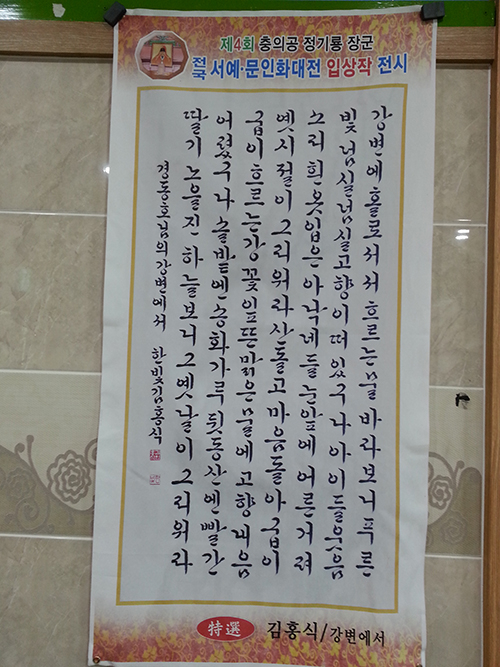 제4회 충의공 정기룡 장군
전국 서예·문인화대전 입상작 전시
강변에 홀로서서 흐르는 물 바라보니 푸른
빛 넘실넘실 고향이 떠있구나 아이들 웃음
소리 흰옷입은 아낙네들 눈앞에 어른거려
옛시절이 그리워라 산돌고 마음돌아 굽이
굽이 흐르는 강 꽃잎 뜬 맑은 물에 고향내음
어렸구나 솔밭엔 송화가루 뒷동산엔 빨간
딸기 노을진 하늘보니 그옛날이 그리워라
경동호님의 강변에서 한빛 김홍식
特選 김홍식/강변에서